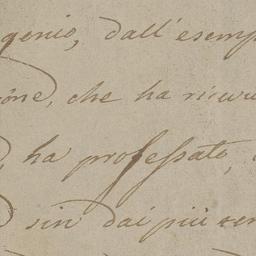 genio, dall'esemp
ione, che ha ricevu
, ha professato,
sin dai più ten